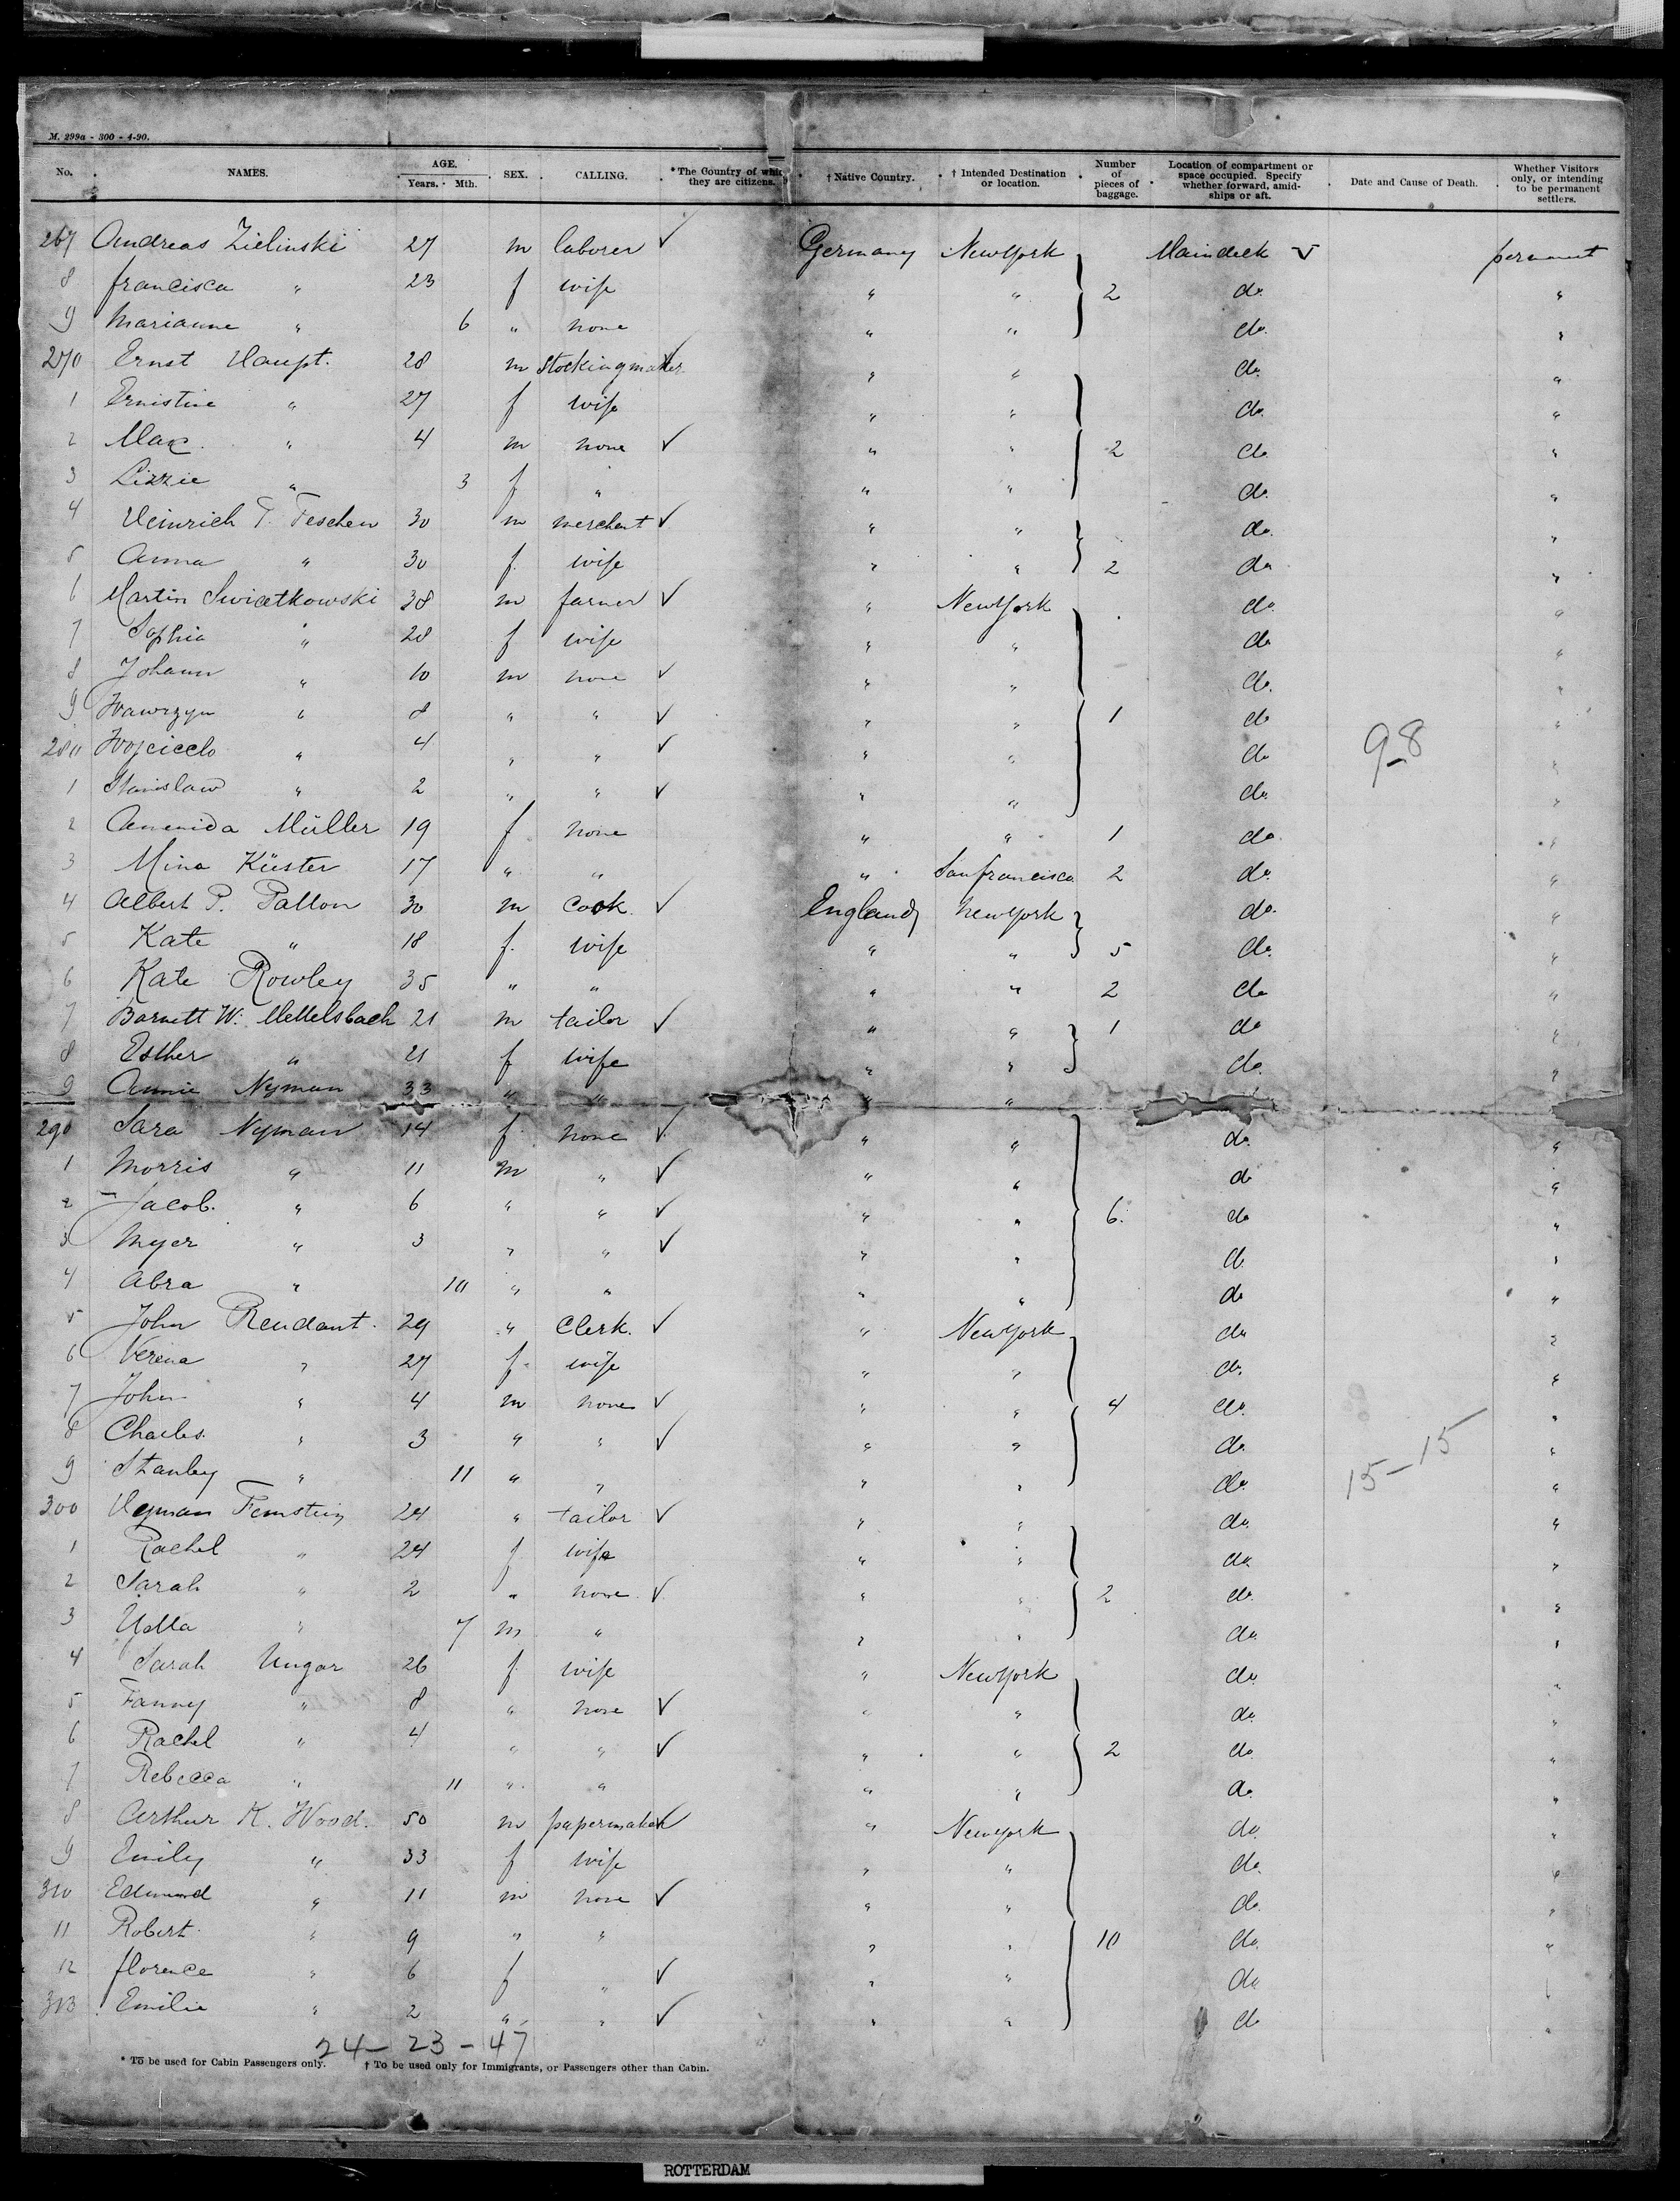 M. 299a - 300 - 4-90.
No. NAMES. AGE. Years. Mth. SEX. CALLING. * The Country of whic they are citizens. † Native Country. † Intended Destination or location. Number of pieces of baggage. Location of compartment or space occupied. Specify whether forward, amid-ships or aft. Date and Cause of Death. Whether Visitors only, or intending to be permanent settlers.
267 Andreas Zielinski 27 m laborer ✓ Germany New York Maindeck ✓ permanent
8 francisca " 23 f wife " " 2 do. "
9 Marianne " 6 " none " " do. "
270 Ernst Haupt. 28 m Stockingmaker ✓ " " do. "
1 Ernistine " 27 f wife " " do. "
2 Max. " 4 m none ✓ " " 2 do. "
3 Lizzie " 3 f " " " do. "
4 Heinrich T. Feschen 30 m merchent ✓ " " do. "
5 Anna " 30 f. wife " " 2 do "
6 Martin Swicetkowski 38 m farmer ✓ " New York do. "
7 Sophia " 28 f wife " " do "
8 Johann " 10 m none ✓ " " do. "
9 Wawrzyn " 8 " " ✓ " " 1 do "
280 Wojciech " 4 " " ✓ " " do "
9-8
1 Stanislaw " 2 " " ✓ " " do. "
2 Müller 19 f none " " 1 do "
3 Mina Küster 17 " " " San francisco 2 do. "
4 Albert P. Patton 30 m Cook. ✓ England New York do. "
5 Kate " 18 f. wife " " 5 do. "
6 Kate Rowley 35 " " " " 2 do "
7 Barnett W. Mettelsbach 21 m tailor ✓ " " 1 do "
8 Esther " 21 f wife " " do. "
9 Annie Nyman 33 " " " "
290 Sara Nyman 14 f. none ✓ " " do. "
1 Morris " 11 m " ✓ " " do "
2 Jacob. " 6 " " ✓ " " 6. do "
3 Myer " 3 " " ✓ " " do "
4 Abra " 10 " " " " do "
5 John Rendant. 29 " Clerk. ✓ " New York do "
6 Verena " 27 f. wife " " do. "
7 John " 4 m none ✓ " " 4 do. "
8 Charles. " 3 " " ✓ " " do. "
9 Stanley " 11 " " " " do. "
15-15
300 Hyman Feinstein 24 " tailor ✓ " " do. "
1 Rachel " 24 f wife " " do. "
2 Sarah " 2 " none ✓ " " 2 do. "
3 " 7 m " " " do. "
4 Sarah Ungar 26 f. wife " New York do. "
5 Fanny " 8 " none ✓ " " do. "
6 Rachel " 4 " " ✓ " " 2 do. "
7 Rebecca " 11 " " " " do. "
8 Arthur K. Wood. 50 m papermaker ✓ " New York do. "
9 Emily " 33 f wife " " do. "
310 Edmund " 11 m none ✓ " " do. "
11 Robert. " 9 " " " " 10 do. "
12 florence " 6 f " ✓ " " do "
313 Emilie " 2 " " ✓ " " do "
24-23-47
* To be used for Cabin Passengers only. † To be used only for Immigrants, or Passengers other than Cabin.
ROTTERDAM